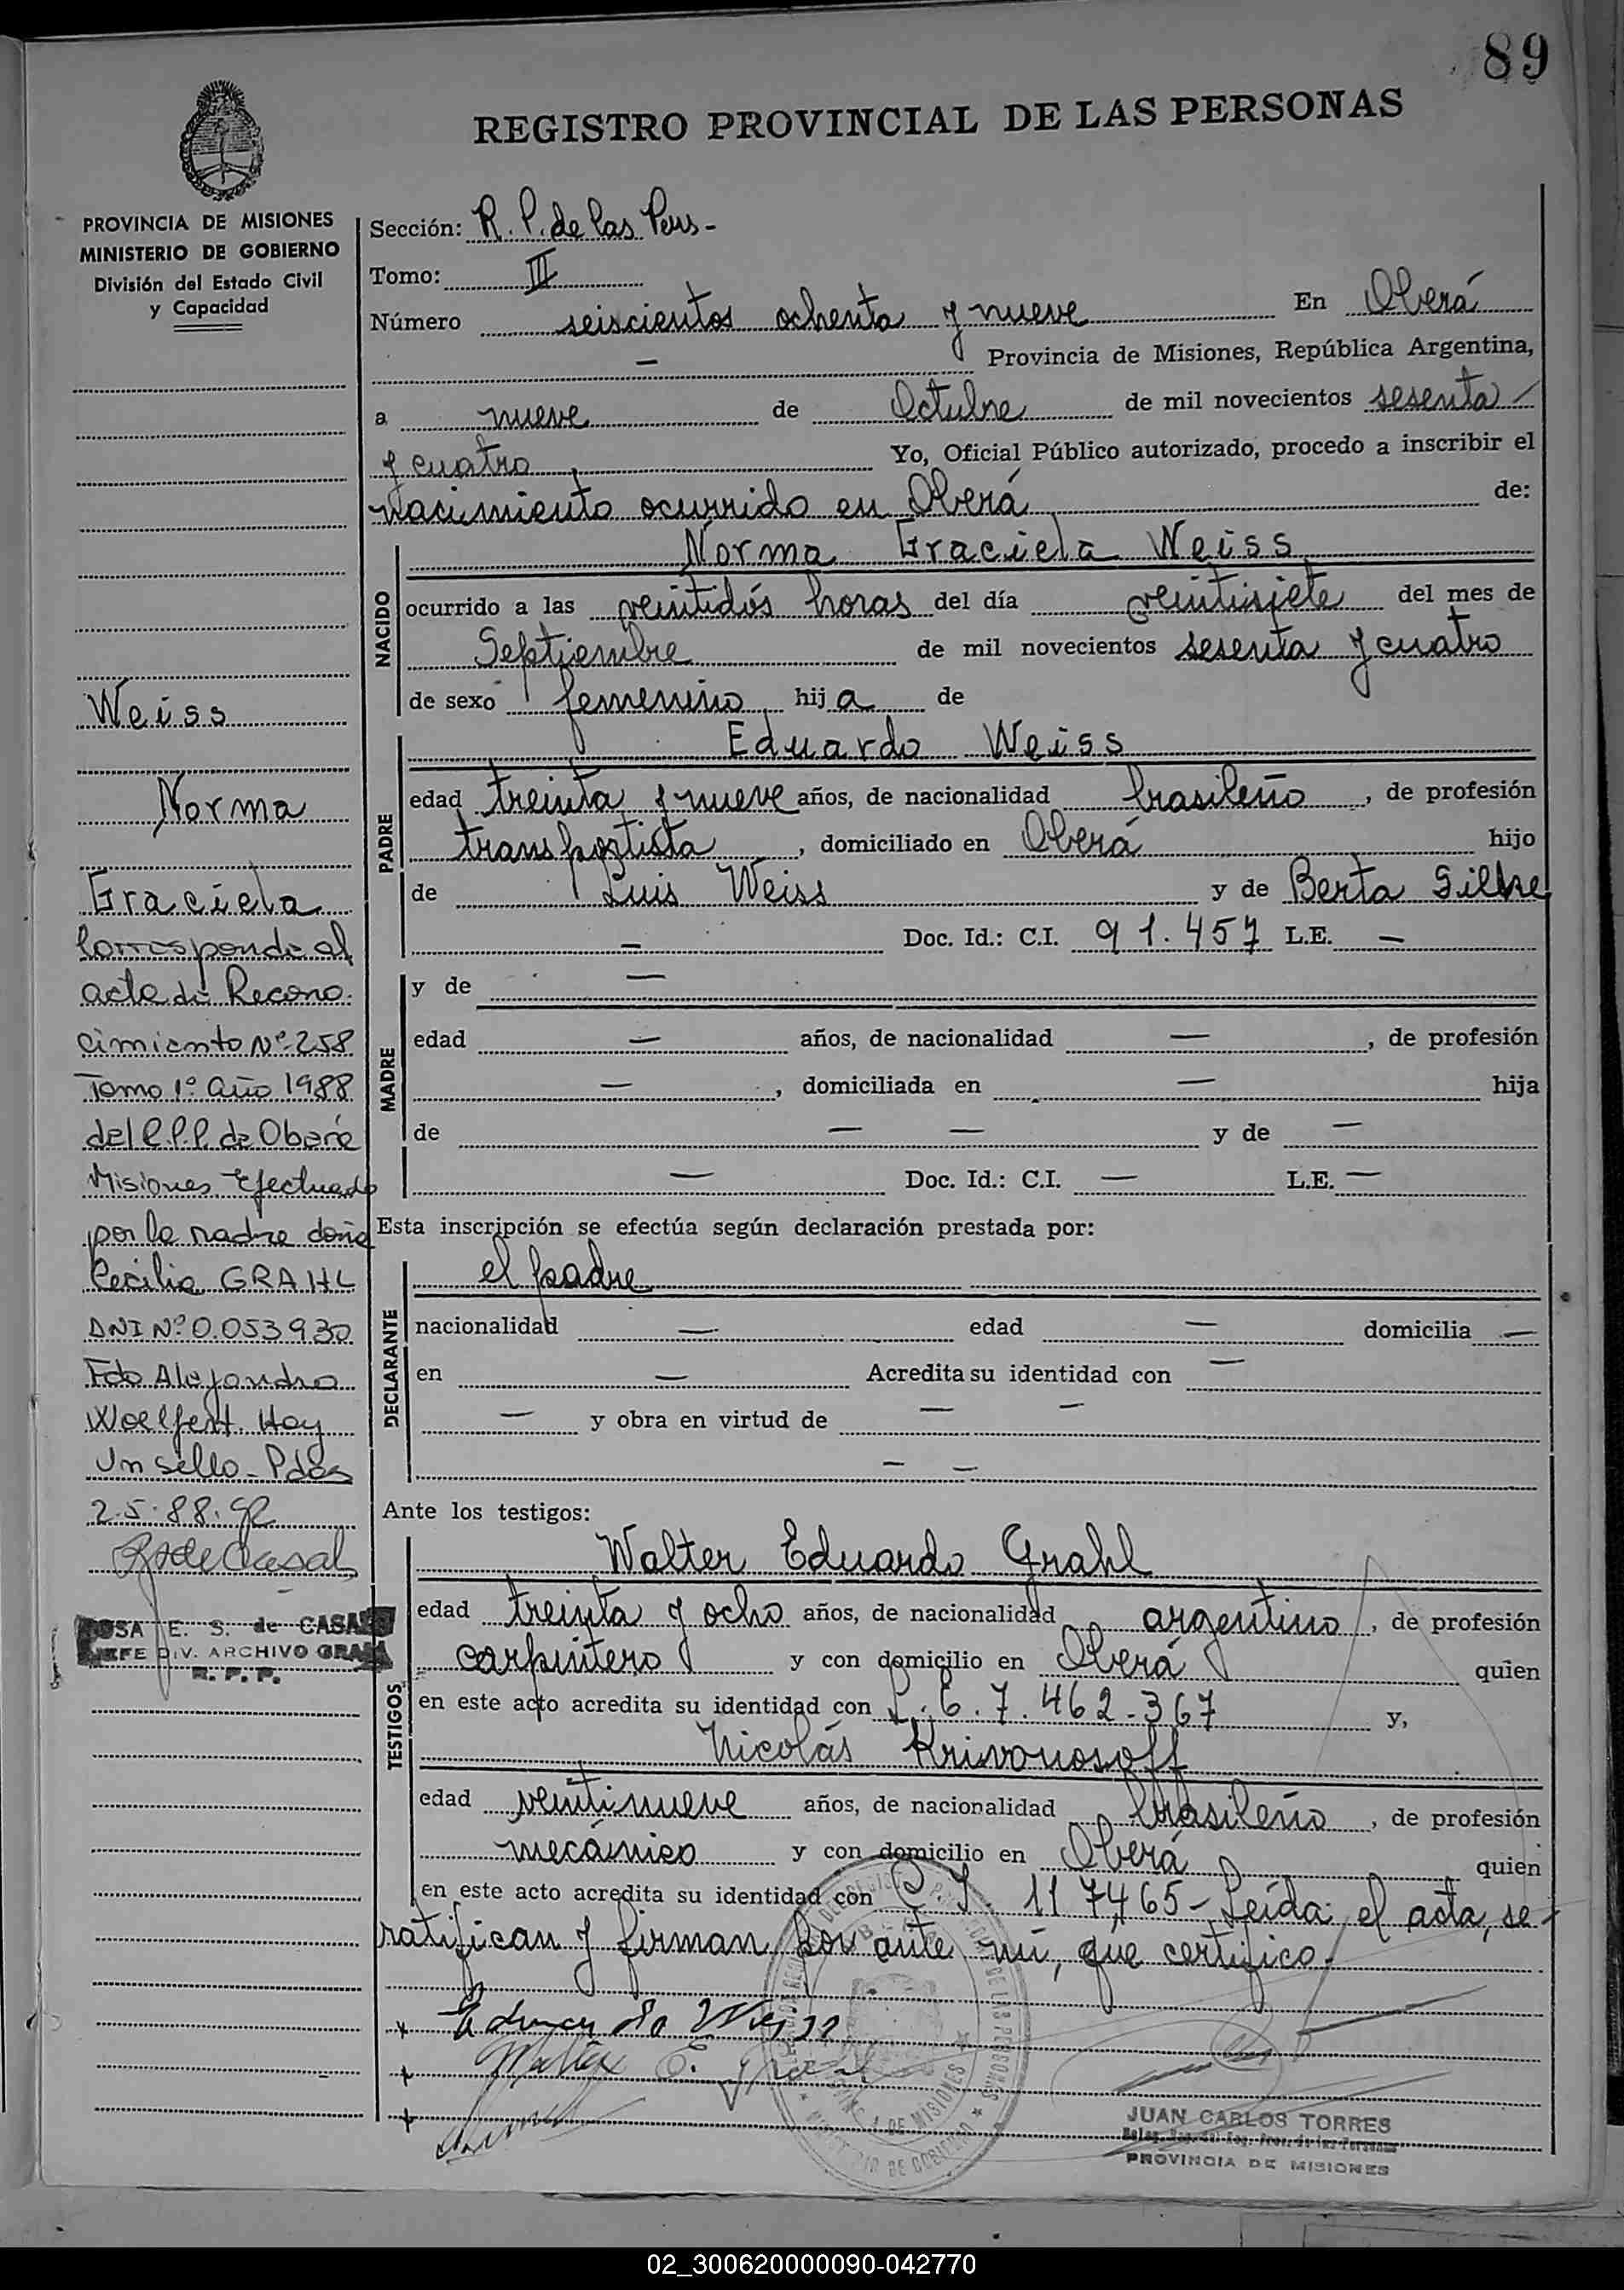 89
REGISTRO PROVINCIAL DE LAS PERSONAS
PROVINCIA DE MISIONES
MINISTERIO DE GOBIERNO
División del Estado Civil
y Capacidad
Weiss
Norma
Graciela
Corresponde al
acta de Recono-
cimiento Nº 258
Tomo 1º año 1988
del R.P.P. de Oberá
Misiones Efectuado
por la madre doña
Cecilia GRAHL
DNI Nº 0.053930
Fdo Alejandro
Woelfert. Hay
Un sello - Pdas
2.5.88.
R de Casal
ROSA E. S. de CASAL
JEFE DIV. ARCHIVO GRAL
R. P. P.
Sección: R. P. de las Pers-
Tomo: III
Número seiscientos ochenta y nueve En Oberá
— Provincia de Misiones, República Argentina,
a nueve de Octubre de mil novecientos sesenta
y cuatro, Yo, Oficial Público autorizado, procedo a inscribir el
nacimiento ocurrido en Oberá de:
NACIDO
Norma Graciela Weiss
ocurrido a las veintidós horas del día veintisiete del mes de
Septiembre de mil novecientos sesenta y cuatro
de sexo femenino hija de
PADRE
Eduardo Weiss
edad treinta y nueve años, de nacionalidad brasileño, de profesión
transportista, domiciliado en Oberá hijo
de Luis Weiss y de Berta Gilke
— Doc. Id.: C.I. 91.457 L.E. —
MADRE
y de —
edad — años, de nacionalidad —, de profesión
—, domiciliada en — hija
de — — y de —
— Doc. Id.: C.I. — L.E. —
Esta inscripción se efectúa según declaración prestada por:
DECLARANTE
el padre
nacionalidad — edad — domicilia —
en — Acredita su identidad con —
— y obra en virtud de — —
— —
Ante los testigos:
TESTIGOS
Walter Eduardo Grahl
edad treinta y ocho años, de nacionalidad argentino, de profesión
carpintero y con domicilio en Oberá quien
en este acto acredita su identidad con L. E. 7.462.367 y,
Nicolás Krivonosoff
edad veintinueve años, de nacionalidad brasileño, de profesión
mecánico y con domicilio en Oberá quien
en este acto acredita su identidad con C I 117,465 - Leída el acta, se
ratifican y firman por ante mí, que certifico.
Eduardo Weiss
Walter E. Grahl
JUAN CARLOS TORRES
PROVINCIA DE MISIONES
02_300620000090-042770